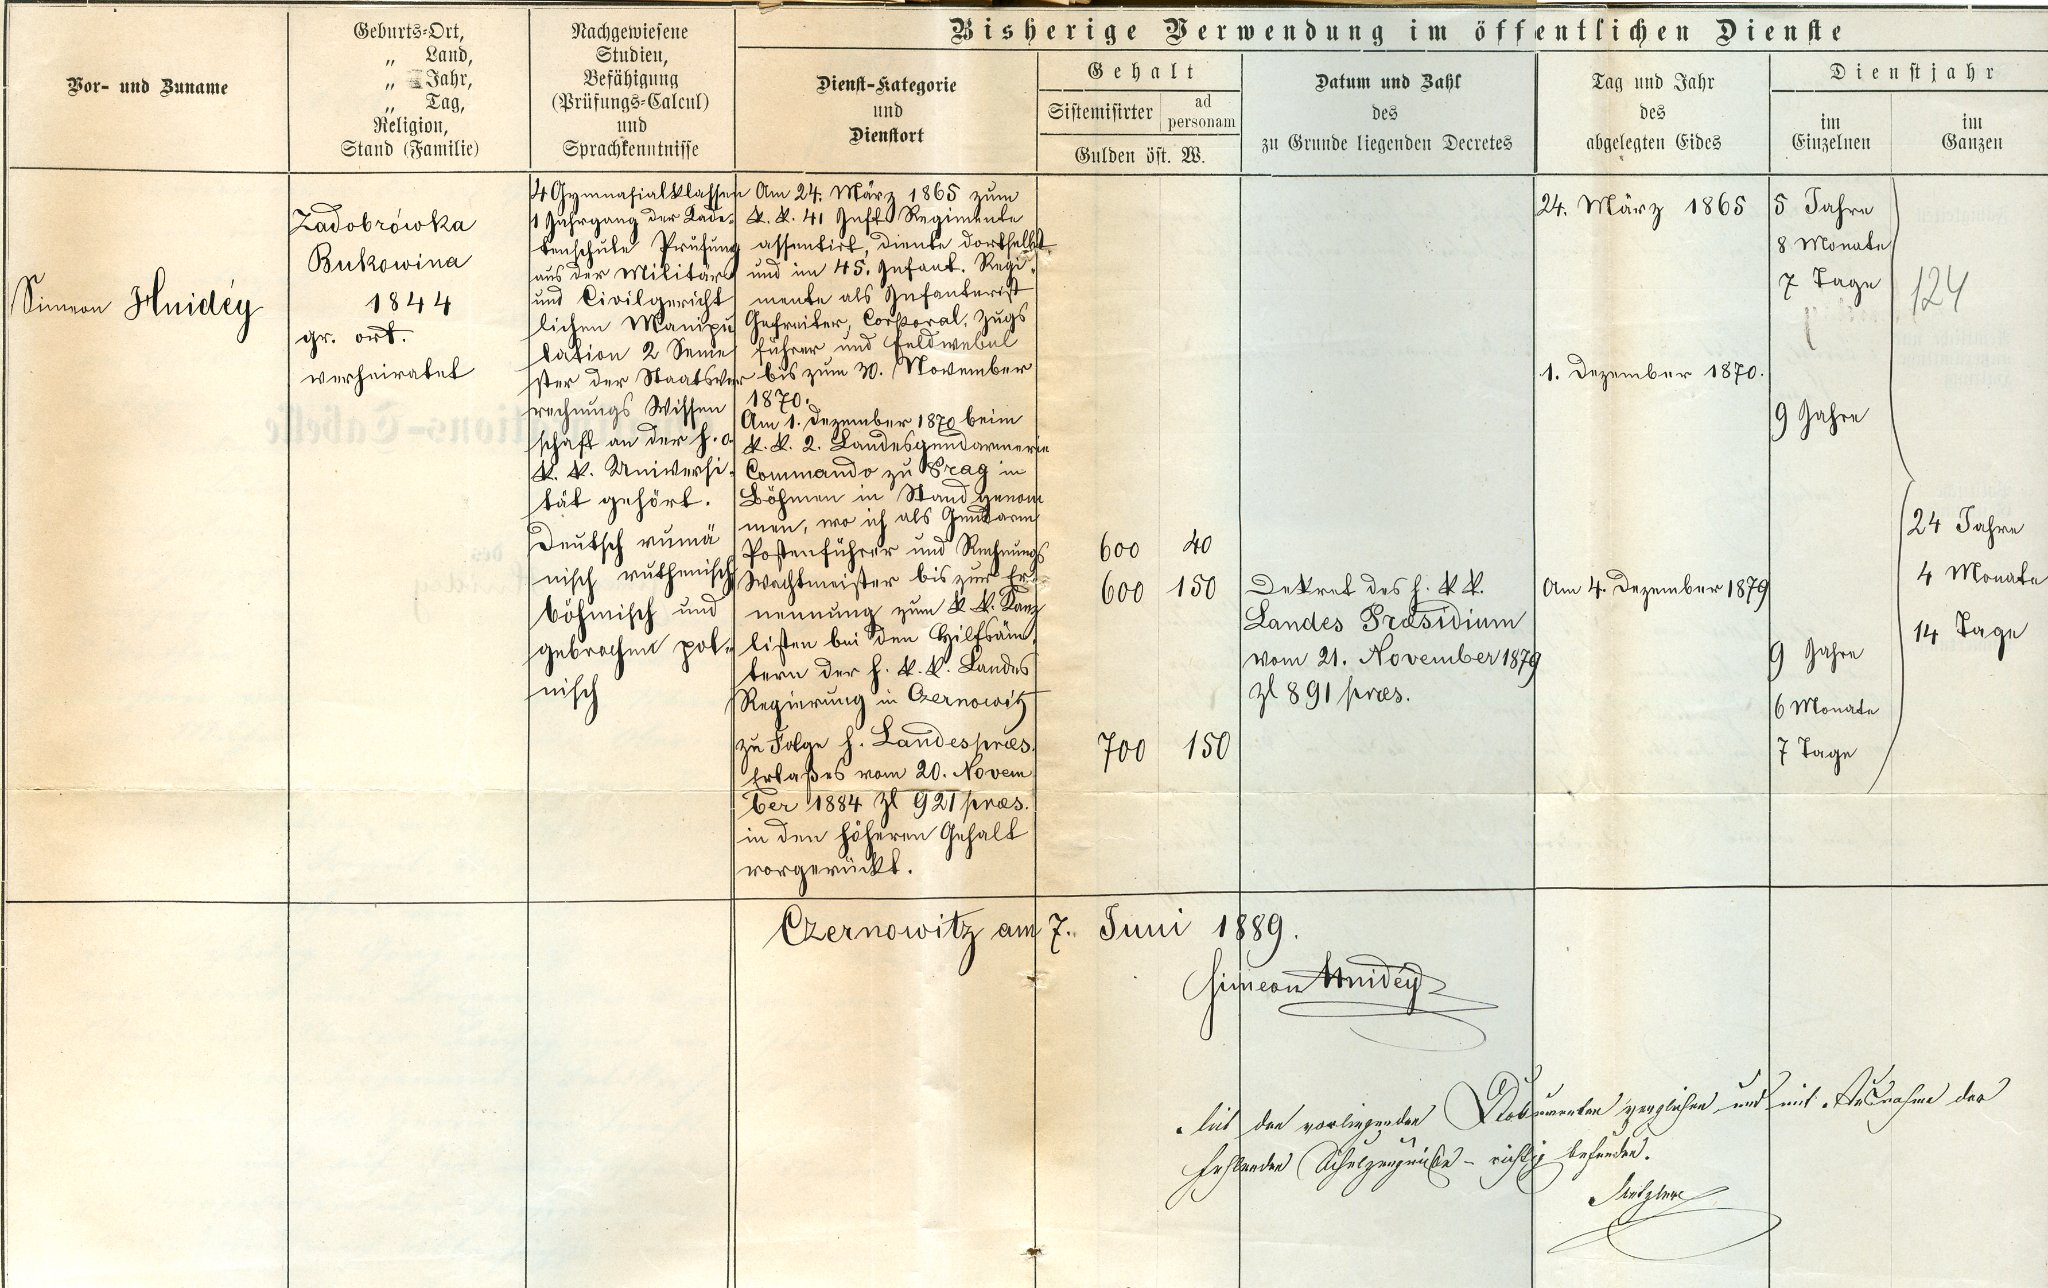 Bisherige Verwendung im öffentlichen Dienste
Vor- und Zuname
Geburts-Ort,
„ Land,
„ Jahr,
„ Tag,
Religion,
Stand (Familie)
Nachgewiesene
Studien,
Befähigung
(Prüfungs-Calcul)
und
Sprachkenntnisse
Dienst-Kategorie
und
Dienstort
Gehalt
Sistemisirter
ad
personam
Gulden öst. W.
Datum und Zahl
des
zu Grunde liegenden Decretes
Tag und Jahr
des
abgelegten Eides
Dienstjahr
im
Einzelnen
im
Ganzen
Simeon Hnidéy
Zadobrówka
Bukowina
1844
gr. ort.
verheiratet
4 Gymnasialklassen
1 Jahrgang der Kade-
tenschule Prüfung
aus der Militär
und Civilgericht
lichen Manipu
lation 2 Seme
ster der Staatsver
rechnungs Wissen
schaft an der h. o.
k. k. Universi-
tät gehört.
Deutsch rumä
nisch ruthenisch
böhmisch und
gebrochen pol-
nisch
Am 24. März 1865 zum
k. k. 41 Inft Regimente
assentirt, diente dortselbst
und im 45. Infant. Regi-
mente als Infanterist
Gefreiter, Corporal, Zugs
führer und Feldwebel
bis zum 30. November
1870.
Am 1. Dezember 1870 beim
k. k. 2. Landesgendarmerie
Commando zu Prag in
Böhmen in Stand genom
men, wo ich als Gendarm
Postenführer und Rechnungs
Wachtmeister bis zur Er-
nennung zum k. k. Kanz
listen bei den Hilfsäm-
tern der h. k. k. Landes
Regierung in Czernowitz
zu Folge h. Landespræs.
Erlaßes vom 20. Novem
ber 1884 Zl 921 præs.
in den höheren Gehalt
vorgerückt.
600 40
600 150
700 150
Dekret des h. k. k.
Landes Præsidium
vom 21. November 1879
Zl 891 præs.
24. März 1865
1. Dezember 1870.
Am 4. Dezember 1879
5 Jahre
8 Monate
7 Tage
9 Jahre
9 Jahre
6 Monate
7 Tage
124
24 Jahre
4 Monate
14 Tage
Czernowitz am 7. Juni 1889.
Simeon Hnidéy
Mit den vorliegenden Dokumenten verglichen und mit Ausnahme der
fehlenden Schulzeugniße – richtig befunden.